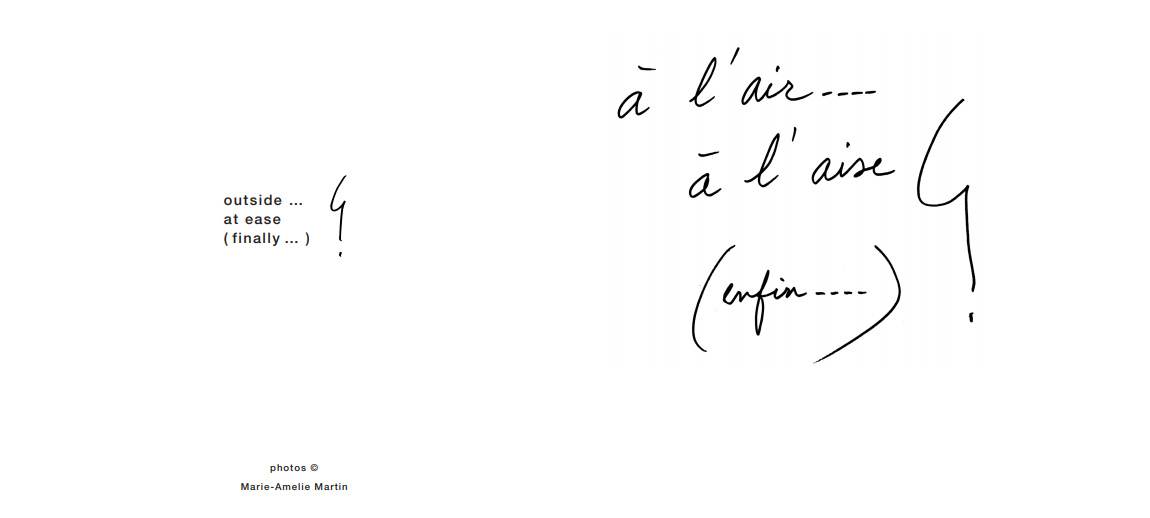 outside ...
at ease
( finally ... )
photos ©
Marie-Amelie Martin
à l'air ----
à l'aise
(enfin ----)